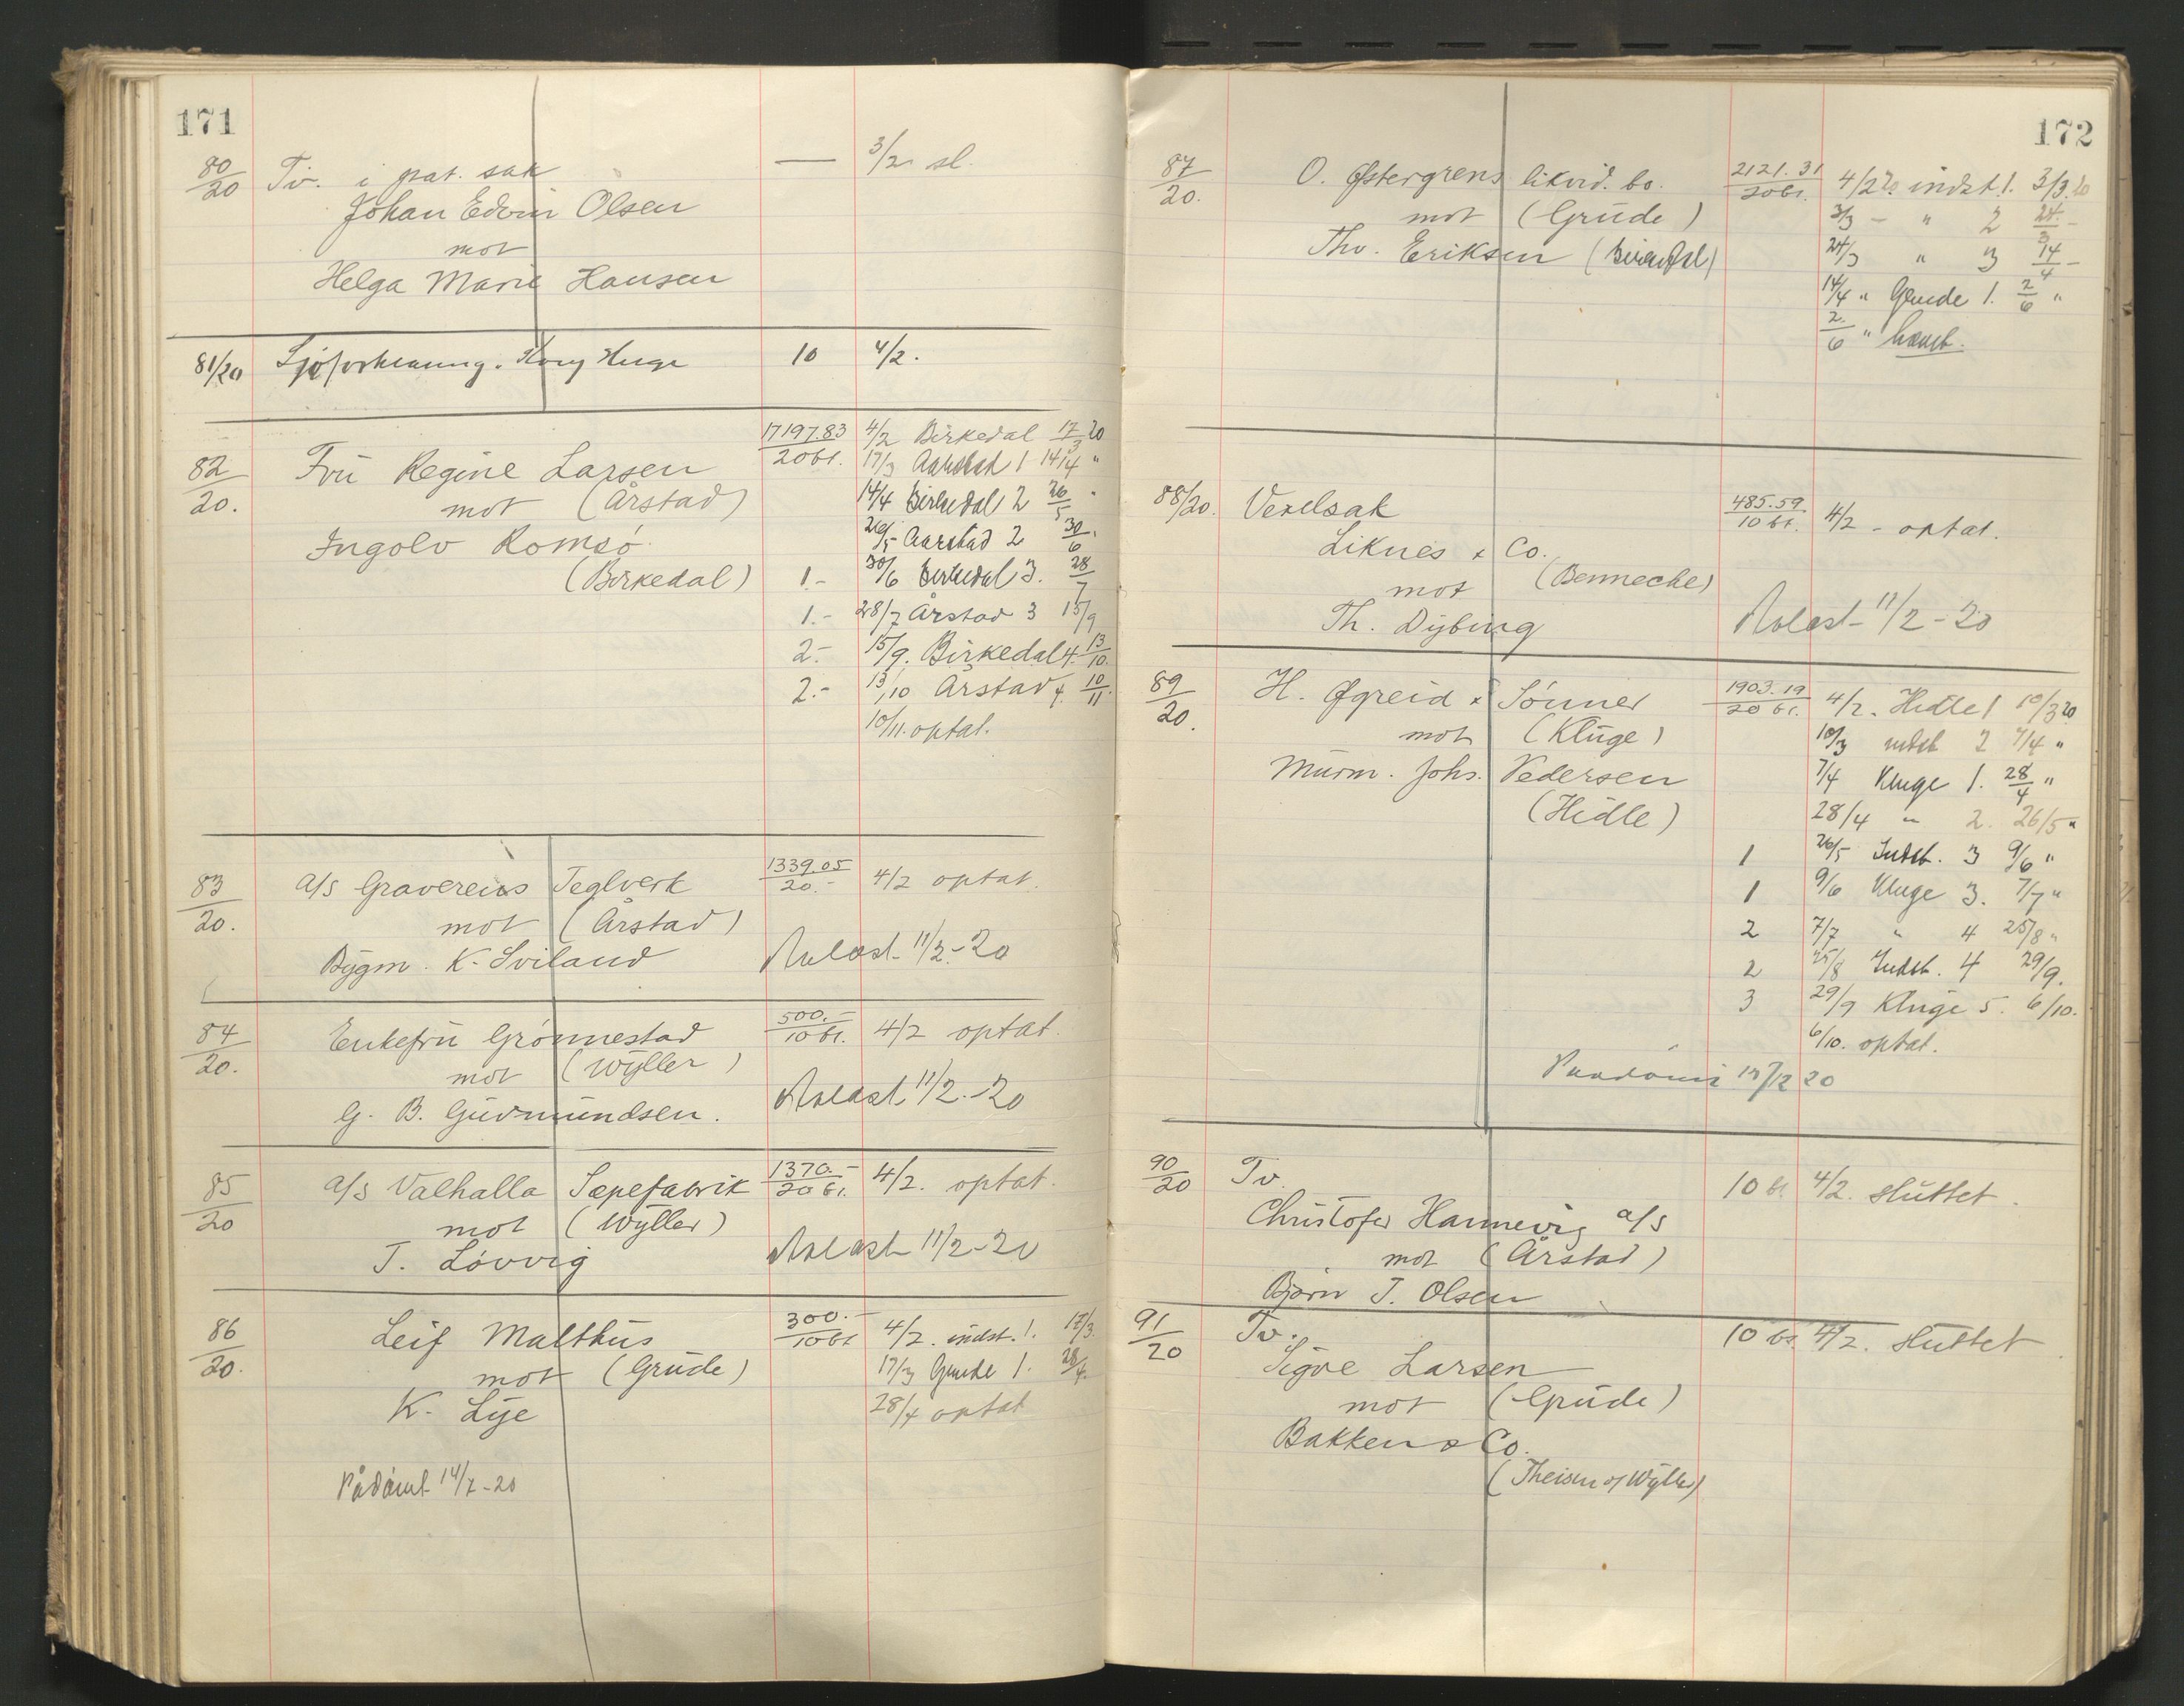 171
80/20 Tv. i pat. sak — 3/2 sl.
Johan Edvin Olsen
mot
Helga Marie Hansen
81/20 Sjøforklaring. Kong Helge 10 4/2.
82/20. Fru Regine Larsen 17197.83/20 bl. 4/2 Birkedal 17/3 20
mot (Årstad) 17/3 Aarstad 1 14/4 "
Ingolv Romsø 14/4 Birkedal 2 26/5 "
(Birkedal) 26/5 Aarstad 2 30/6 "
1.- 30/6 Birkedal 3. 28/7
1.- 28/7 Årstad 3 15/9
2.- 15/9. Birkedal 4. 13/10.
2.- 13/10 Årstad 4. 10/11.
10/11. optat.
83/20. a/s Gravereins Teglverk 1339.05/20.- 4/2 optat.
mot (Årstad)
Bygm. K. Sviland Avlæst 11/2-20
84/20. Enkefru Grønnestad 500.-/10 bl. 4/2 optat.
mot (Wyller)
G. B. Gudmundsen. Avlæst 11/2.-20
85/20 a/s Valhalla Sæpefabrik 1370.-/20 bl. 4/2. optat.
mot (Wyller)
T. Løvvig Avlæst 11/2-20
86/20. Leif Malthus 300.-/10 bl 4/2. indst. 1. 17/3.
mot (Grude) 17/3 Grude 1. 28/4.
K. Lye 28/4 optat
Pådømt 14/7-20
172
87/20. O. Østergrens likvid. bo. 2121.31/20 bl. 4/2 20 indst. 1. 3/3.20
mot (Grude) 3/3 - " 2 24/3 -
Thv. Eriksen 24/3 " 3 14/4 -
14/4 " Grude 1. 2/6 "
2/6 " hævet.
88/20. Vexelsak 485.59/10 bl. 4/2 - optat.
Liknes & Co.
mot (Benneche)
Th. Dybing Avlæst 11/2-20
89/20. H. Øgreid & Sønner 1903.19/20 bl. 4/2. Hidle 1 10/3 20
mot (Kluge) 10/3 indst 2 7/4 "
Murm. Johs. Pedersen 7/4 Kluge 1. 28/4 "
(Hidle) 28/4 " 2. 26/5 "
1 26/5 Indst. 3 9/6 "
1 9/6 Kluge 3. 7/7 "
2 7/7 " 4 25/8 "
2 25/8 Indst. 4 29/9.
3 29/9 Kluge 5. 6/10.
6/10. optat.
90/20 Tv. 10 bl. 4/2. sluttet.
Christofer Hannevig a/s
mot (Årstad)
Bjørn T. Olsen
91/20 Tv. 10 bl. 4/2. sluttet.
Sigve Larsen
mot (Grude)
Bakken & Co.
(Theisen og Wyller)